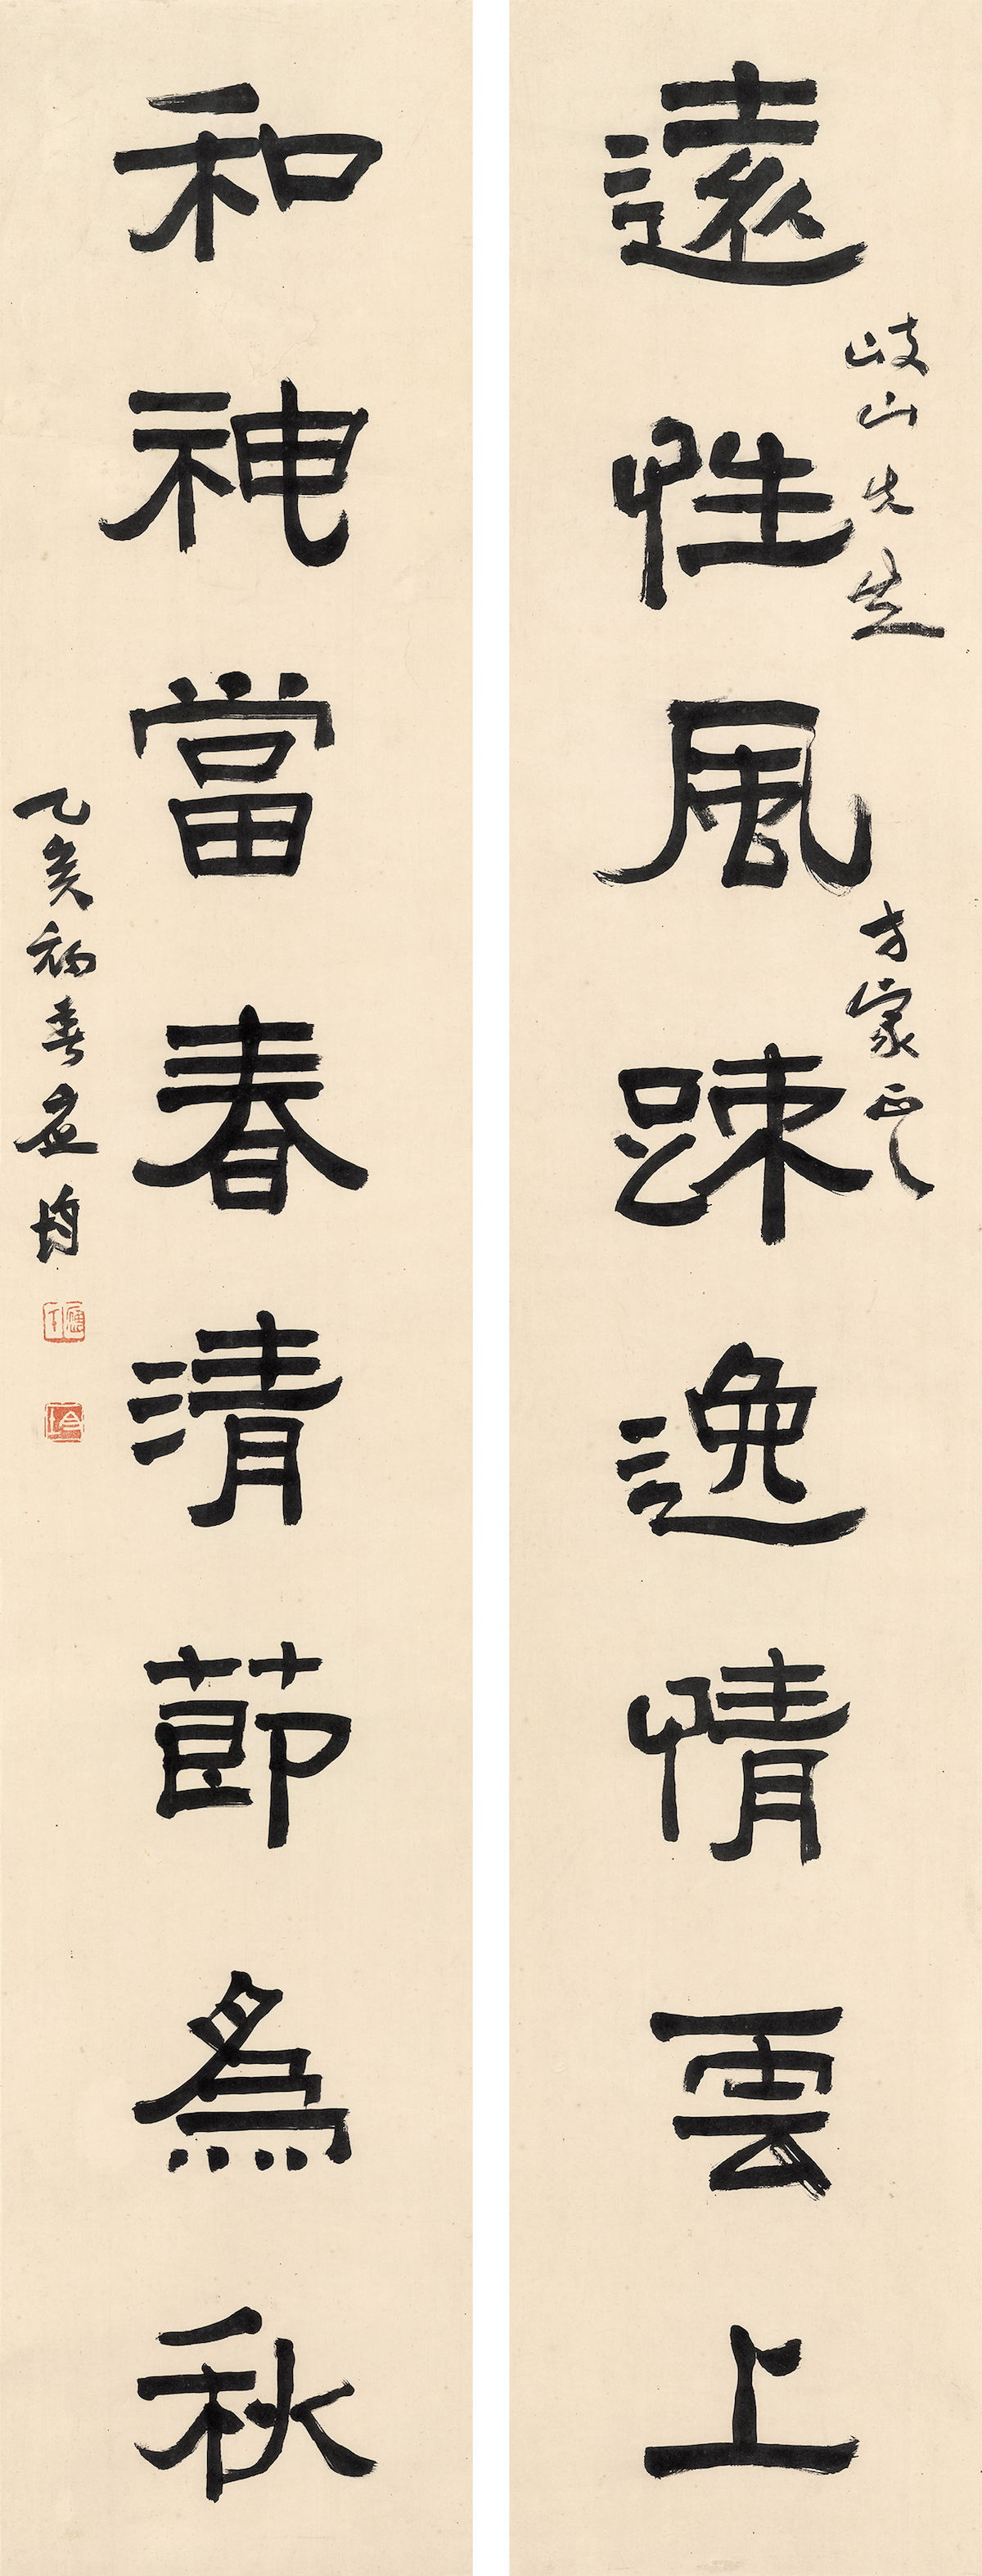 遠性風踈逸情雲上
岐山先生
方家正之
和神當春清節爲秋
乙亥初春